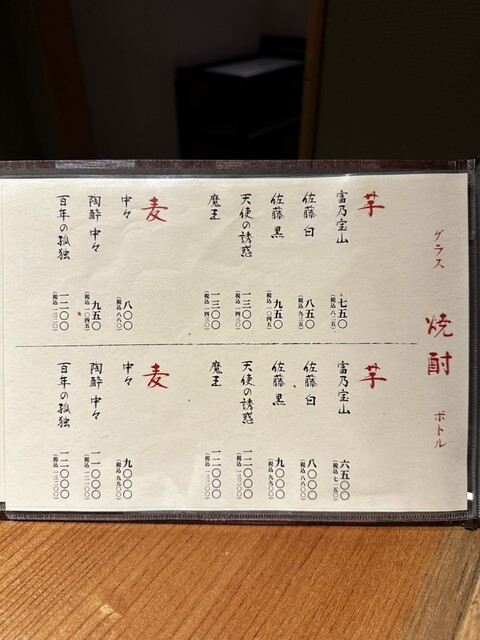 焼酎
グラス
芋
富乃宝山 七五〇
(税込 八二五)
佐藤 白 八五〇
(税込 九三五)
佐藤 黒 九五〇
(税込 一〇四五)
天使の誘惑 一三〇〇
(税込 一四三〇)
魔王 一三〇〇
(税込 一四三〇)
麦
中々 八〇〇
(税込 八八〇)
陶酔 中々 九五〇
(税込 一〇四五)
百年の孤独 一二〇〇
(税込 一三二〇)
ボトル
芋
富乃宝山 六五〇〇
(税込 七一五〇)
佐藤 白 八〇〇〇
(税込 八八〇〇)
佐藤 黒 九〇〇〇
(税込 九九〇〇)
天使の誘惑 一二〇〇〇
(税込 一三二〇〇)
魔王 一二〇〇〇
(税込 一三二〇〇)
麦
中々 九〇〇〇
(税込 九九〇〇)
陶酔 中々 一一〇〇〇
(税込 一二一〇〇)
百年の孤独 一二〇〇〇
(税込 一三二〇〇)